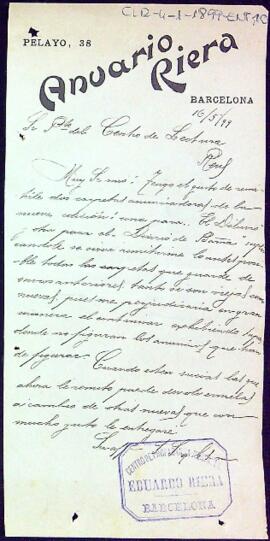 CLR-4-1-1899-ENT-1C
PELAYO, 38
Anuario
Riera
BARCELONA
16/5/99
Sr Pte del Centro de Lectura
Reus
Muy Sr mio: Tengo el gusto de remi-
tirle dos carpetas anunciadoras de la
nueva edición: una para "El Diluvio"
y otra para el "Diario de Barna" supli-
candole se sirva remitirme lo antes posi-
ble todas las carpetas que guarde de
varios anteriores, tanto si son viejas como
nuevas, pues me perjudicaria en gran
manera el continuar exhibiendo tapas
donde no figuran los anuncios que han
de figurar.
Cuando esten sucias las que
ahora le remito puede devolvermelas
a cambio de otras nuevas que con
mucho gusto le entregaré.
EDUARDO RIERA
BARCELONA